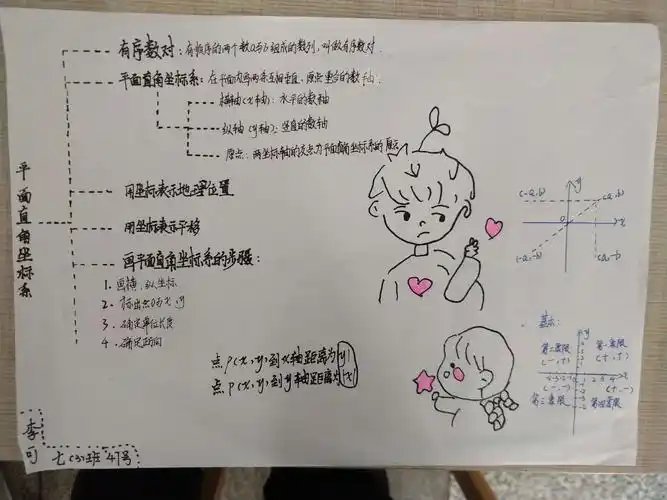 平面直角坐标系
有序数对：有顺序的两个数a与b组成的数列，叫做有序数对.
平面直角坐标系：在平面内画两条互相垂直、原点重合的数轴
横轴（x轴）：水平的数轴
纵轴（y轴）：竖直的数轴
原点：两坐标轴的交点为平面直角坐标系的原点
用坐标表示地理位置
用坐标表示平移
画平面直角坐标系的步骤：
1. 画横、纵坐标
2. 标出点O与x y
3. 确定单位长度
4. 确定正向
点P（x，y）到x轴距离为|y|
点P（x，y）到y轴距离为|x|
y
(-a,b)
(a,b)
O
x
(-a,-b)
(a,-b)
基本：
y
第二象限
第一象限
(-,+)
(+,+)
x
(-,-)
(+,-)
第三象限
第四象限
李可
七（3）班 47号